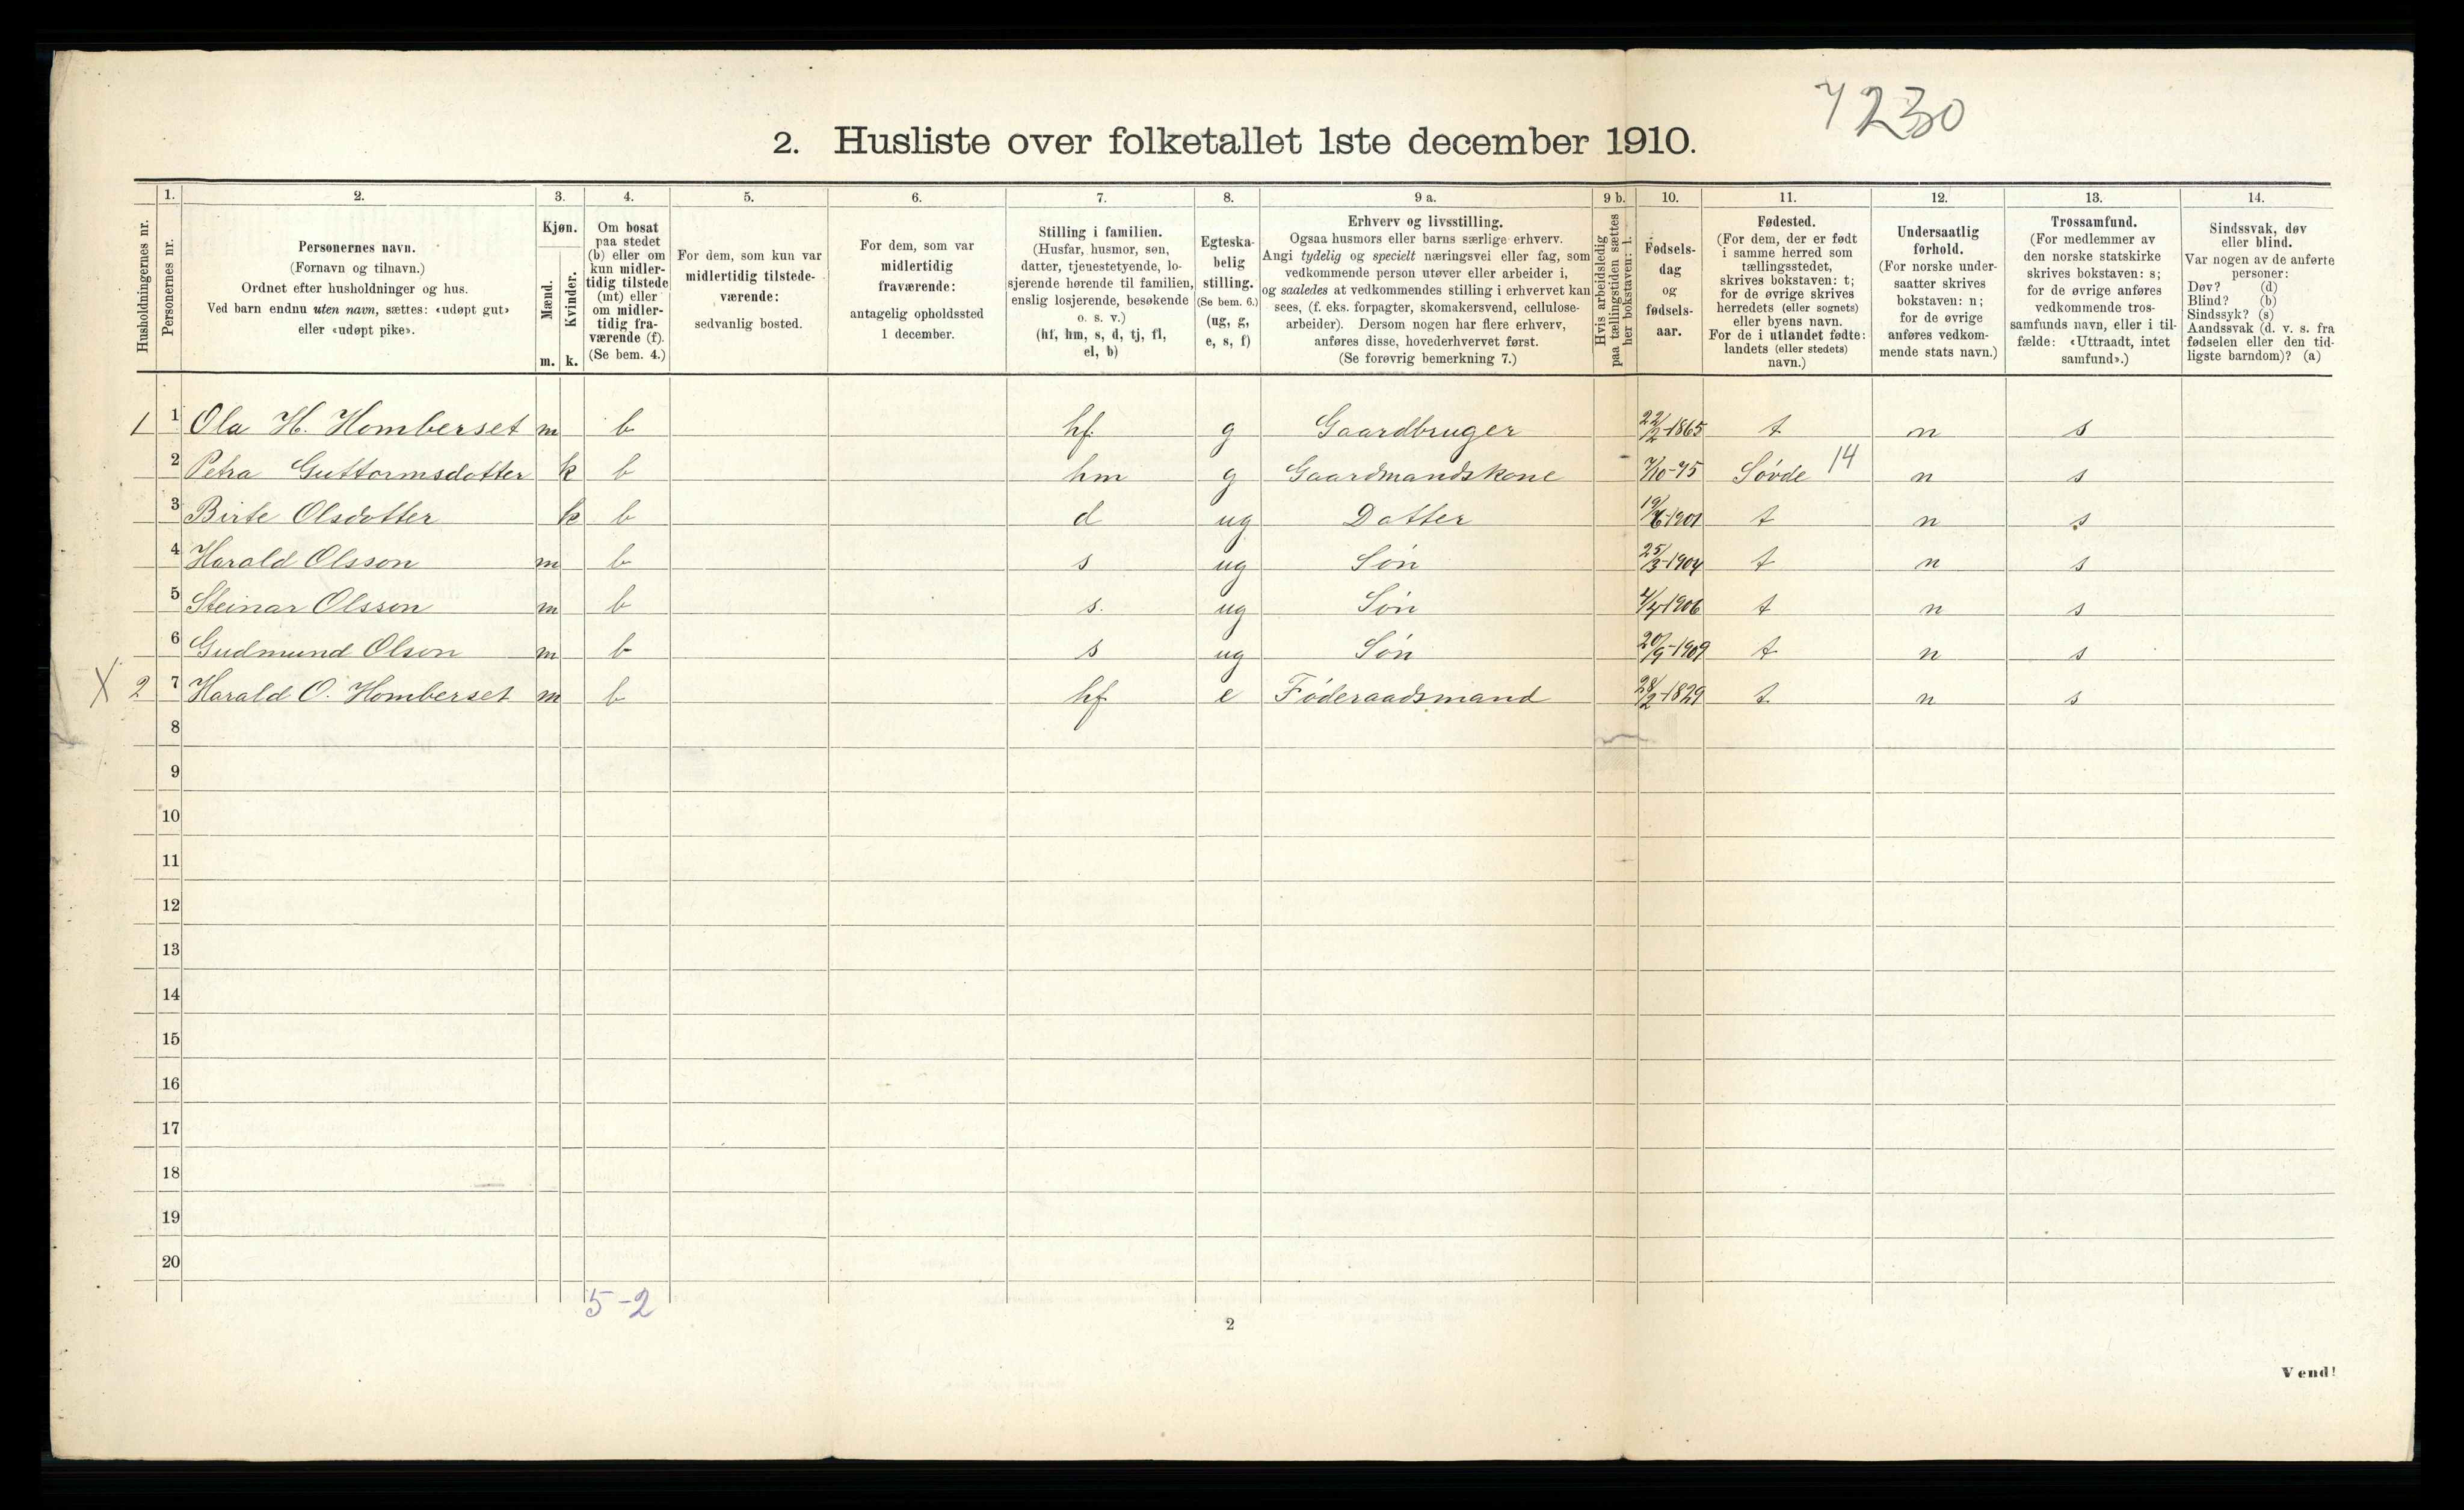 7230
2. Husliste over folketallet 1ste december 1910.
Husholdningernes nr.
1.
Personernes nr.
2.
Personernes navn.
(Fornavn og tilnavn.)
Ordnet efter husholdninger og hus.
Ved barn endnu uten navn, sættes: «udøpt gut»
eller «udøpt pike».
3.
Kjøn.
Mænd.
Kvinder.
m. k.
4.
Om bosat
paa stedet
(b) eller om
kun midler-
tidig tilstede
(mt) eller
om midler-
tidig fra-
værende (f).
(Se bem. 4.)
5.
For dem, som kun var
midlertidig tilstede-
værende:
sedvanlig bosted.
6.
For dem, som var
midlertidig
fraværende:
antagelig opholdssted
1 december.
7.
Stilling i familien.
(Husfar, husmor, søn,
datter, tjenestetyende, lo-
sjerende hørende til familien,
enslig losjerende, besøkende
o. s. v.)
(hf, hm, s, d, tj, fl,
el, b)
8.
Egteska-
belig
stilling.
(Se bem. 6.)
(ug, g,
e, s, f)
9 a.
Erhverv og livsstilling.
Ogsaa husmors eller barns særlige erhverv.
Angi tydelig og specielt næringsvei eller fag, som
vedkommende person utøver eller arbeider i,
og saaledes at vedkommendes stilling i erhvervet kan
sees, (f. eks. forpagter, skomakersvend, cellulose-
arbeider). Dersom nogen har flere erhverv,
anføres disse, hovederhvervet først.
(Se forøvrig bemerkning 7.)
9 b.
Hvis arbeidsledig
paa tællingstiden sættes
her bokstaven: l.
10.
Fødsels-
dag
og
fødsels-
aar.
11.
Fødested.
(For dem, der er født
i samme herred som
tællingsstedet,
skrives bokstaven: t;
for de øvrige skrives
herredets (eller sognets)
eller byens navn.
For de i utlandet fødte:
landets (eller stedets)
navn.)
12.
Undersaatlig
forhold.
(For norske under-
saatter skrives
bokstaven: n;
for de øvrige
anføres vedkom-
mende stats navn.)
13.
Trossamfund.
(For medlemmer av
den norske statskirke
skrives bokstaven: s;
for de øvrige anføres
vedkommende tros-
samfunds navn, eller i til-
fælde: «Uttraadt, intet
samfund».)
14.
Sindssvak, døv
eller blind.
Var nogen av de anførte
personer:
Døv? (d)
Blind? (b)
Sindssyk? (s)
Aandssvak (d. v. s. fra
fødselen eller den tid-
ligste barndom)? (a)
1 1 Ola H. Homberset m b hf. g Gaardbruger 22/2-1865 t n s
2 Petra Guttormsdotter k b hm g Gaardmandskone 7/10-75 Søvde 14 n s
3 Birte Olsdotter k b d ug Datter 19/6-1901 t n s
4 Harald Olsson m b s ug Søn 25/3-1904 t n s
5 Steinar Olsson m b s. ug Søn 4/7-1906 t n s
6 Gudmund Olson m b s ug Søn 20/9-1909 t n s
X 2 7 Harald O. Homberset m b hf. e Føderaadsmand 28/2-1829 t n s
8
9
10
11
12
13
14
15
16
17
18
19
20
5-2
2
Vend!